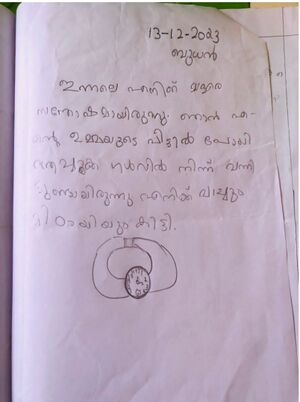 13-12-2023
ബുധൻ
ഇന്നലെ എനിക്ക് വളരെ
സന്തോഷമായിരുന്നു. ഞാൻ എ-
ന്റെ ഉമ്മയുടെ വീട്ടിൽ പോയി
ഗൾഫിൽ നിന്ന് വന്നി
ട്ടുണ്ടായിരുന്നു എനിക്ക് വാച്ചും
മിഠായിയും കിട്ടി.